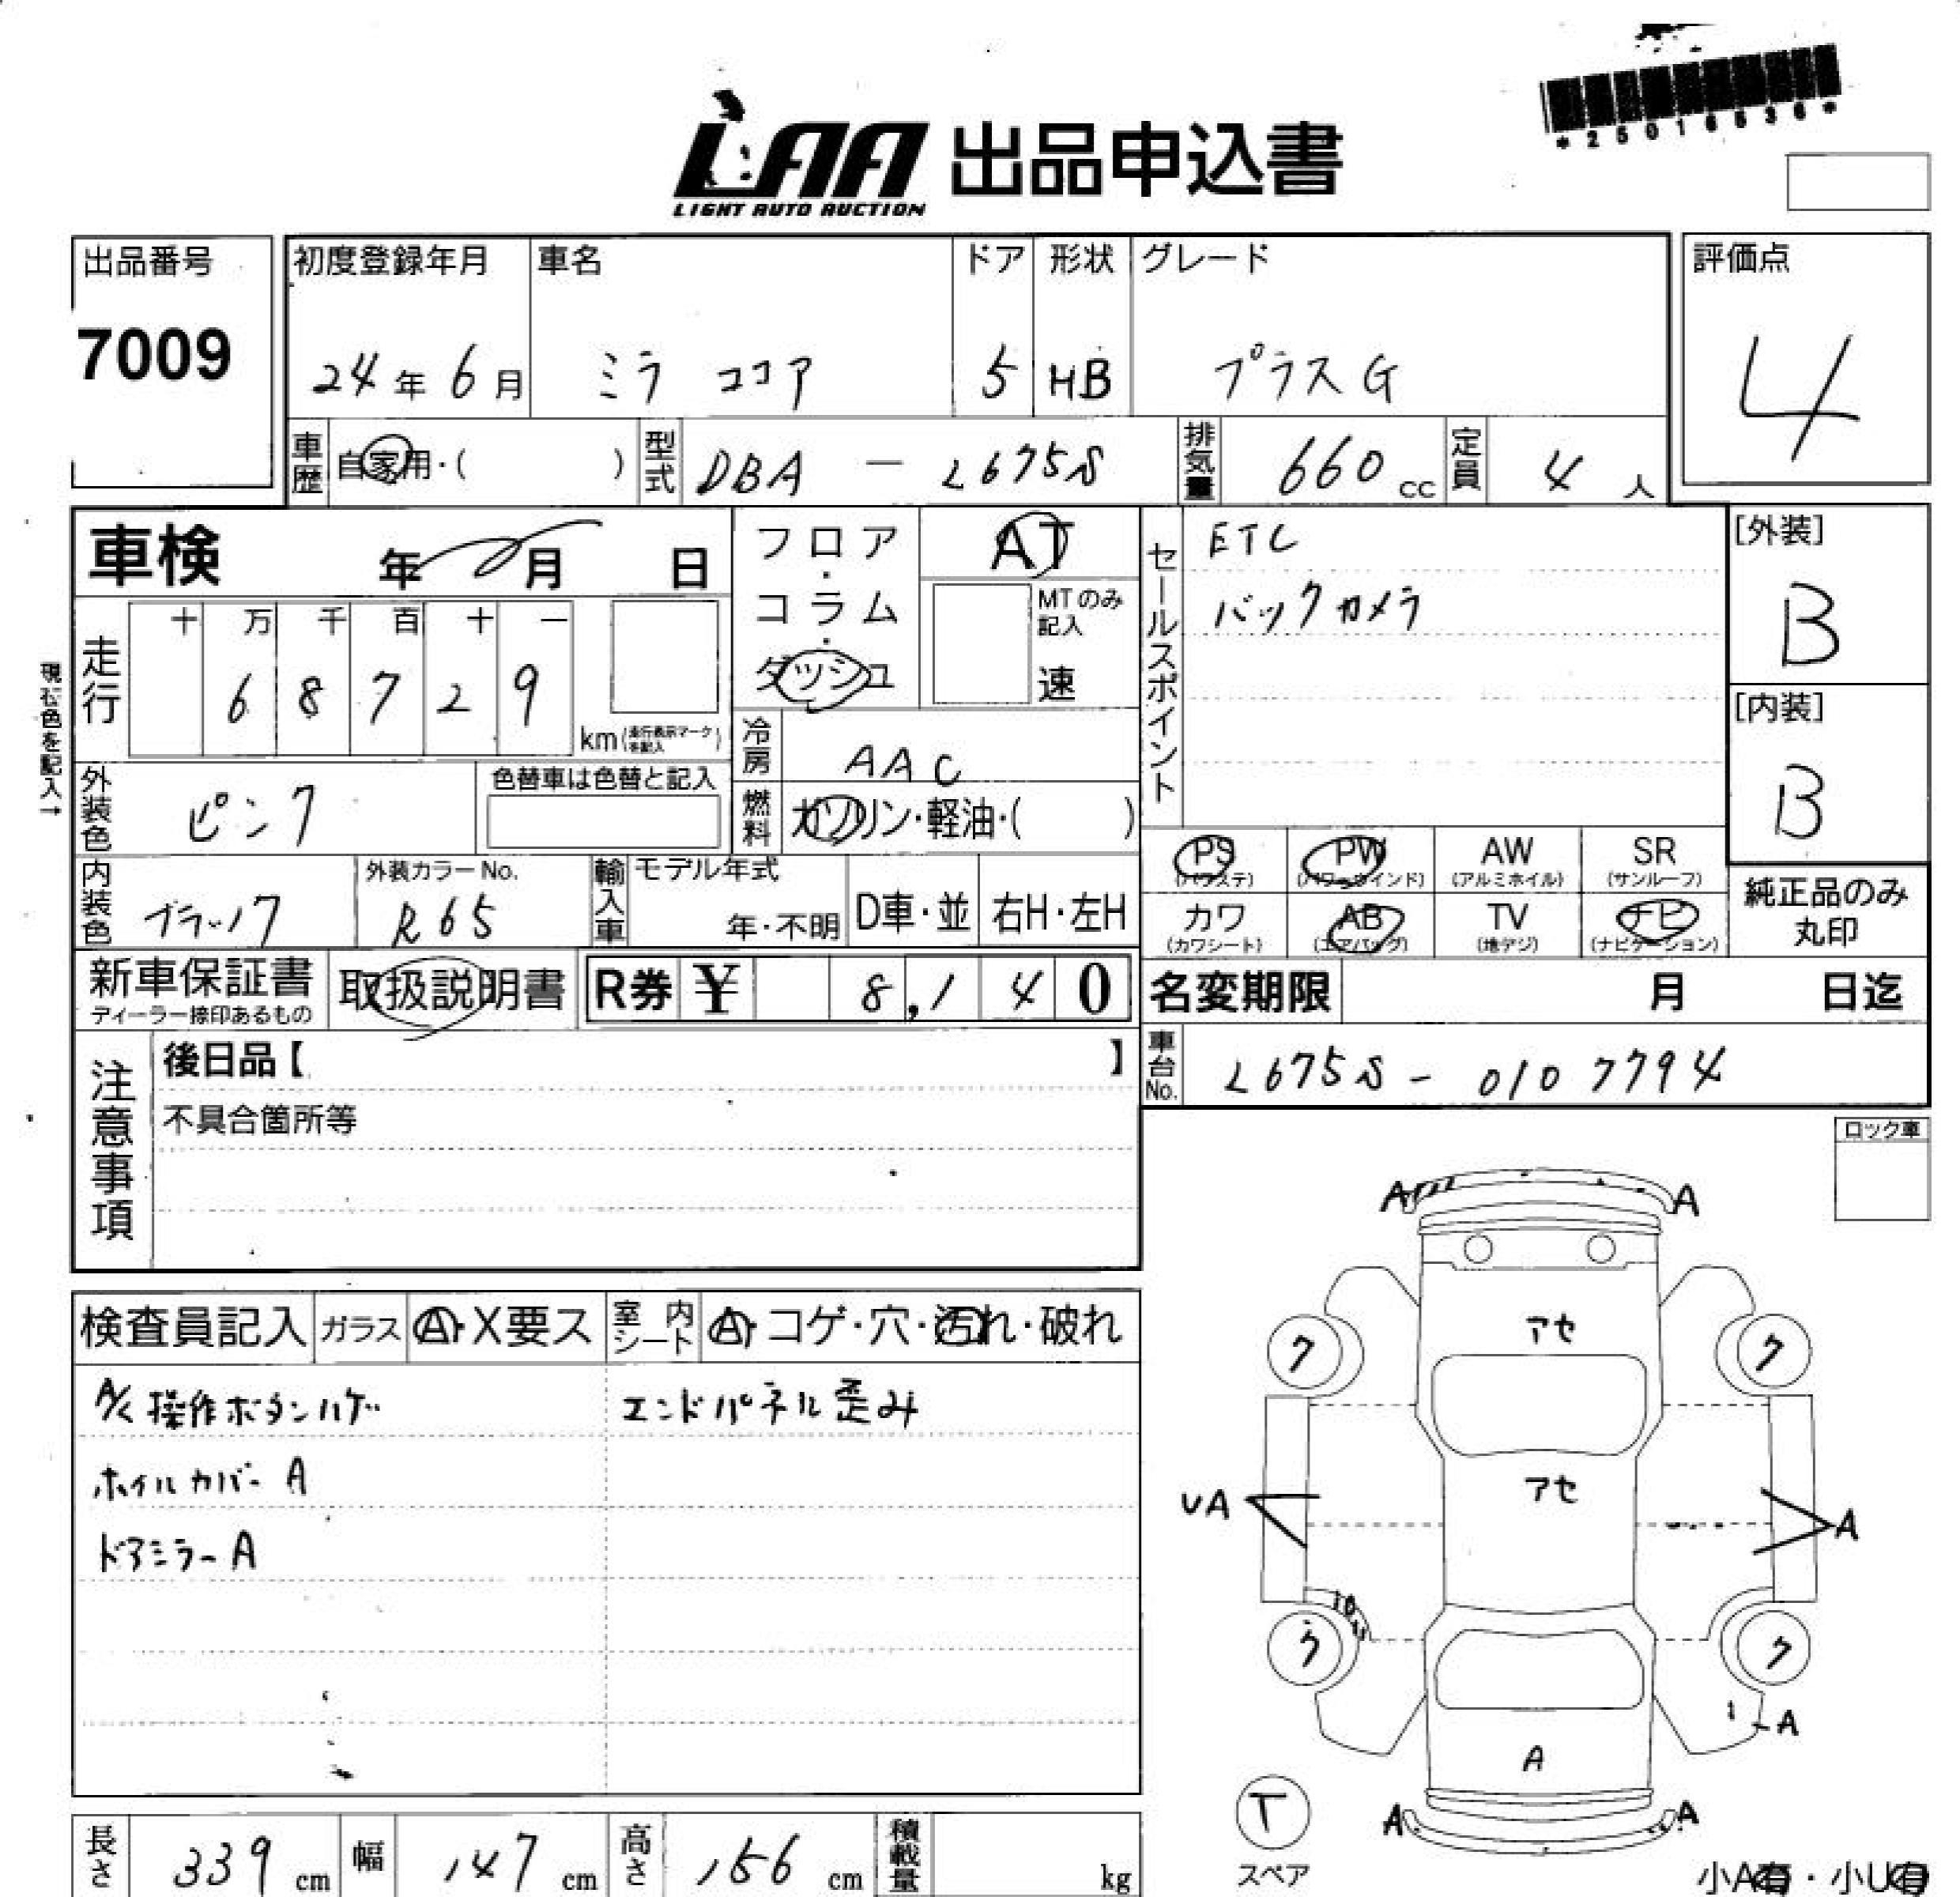 *25016536*
LAA 出品申込書
LIGHT AUTO AUCTION
出品番号 初度登録年月 車名 ドア 形状 グレード 評価点
7009 24年6月 ミラ ココア 5 HB プラスG 4
車歴 自家用・( ) 型式 DBA — L675S 排気量 660 cc 定員 4 人
車検 年 月 日 フロア・コラム・ダッシュ AT セールスポイント ETC [外装]
バックカメラ B
MTのみ記入 速
現在色を記入→
走行 十 万 千 百 十 一
6 8 7 2 9 km (走行表示マークを記入) [内装]
冷房 AAC B
外装色 ピンク 色替車は色替と記入 燃料 ガソリン・軽油・( )
PS (パワステ) PW (パワーウインド) AW (アルミホイル) SR (サンルーフ)
内装色 ブラック 外装カラーNo. R65 輸入車 モデル年式 年・不明 D車・並 右H・左H
カワ (カワシート) AB (エアバッグ) TV (地デジ) ナビ (ナビゲーション) 純正品のみ丸印
新車保証書 ディーラー捺印あるもの 取扱説明書 R券 ¥ 8,140 名変期限 月 日迄
注意事項 後日品【 】 車台No. L675S - 0107794
不具合箇所等
ロック車
A A
検査員記入 ガラス A・X要ス 室内シート A・コゲ・穴・汚れ・破れ
アセ
ク ク
A/C操作ボタンハゲ エンドパネル歪み
ホイルカバー A
アセ
UA A
ドアミラー A
ク ク
A
A
T
スペア
A A
長さ 339 cm 幅 147 cm 高さ 156 cm 積載量 kg
小A有・小U有